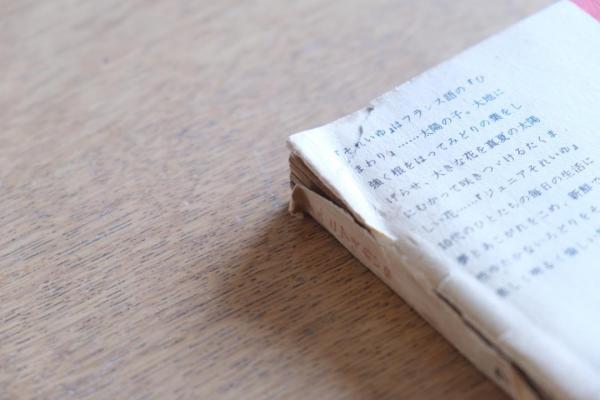 『それいゆ』はフランス語の『ひ
まわり』……太陽の子。大地に
強く根をはってみどりの葉をし
げらせ、大きな花を真夏の太陽
にむかって咲きつゞけるたくま
しい花…『ジュニアそれいゆ』
10代のひとたちの毎日の生活に
夢とあこがれをこめ、新鮮
いろどりをそ
明るく